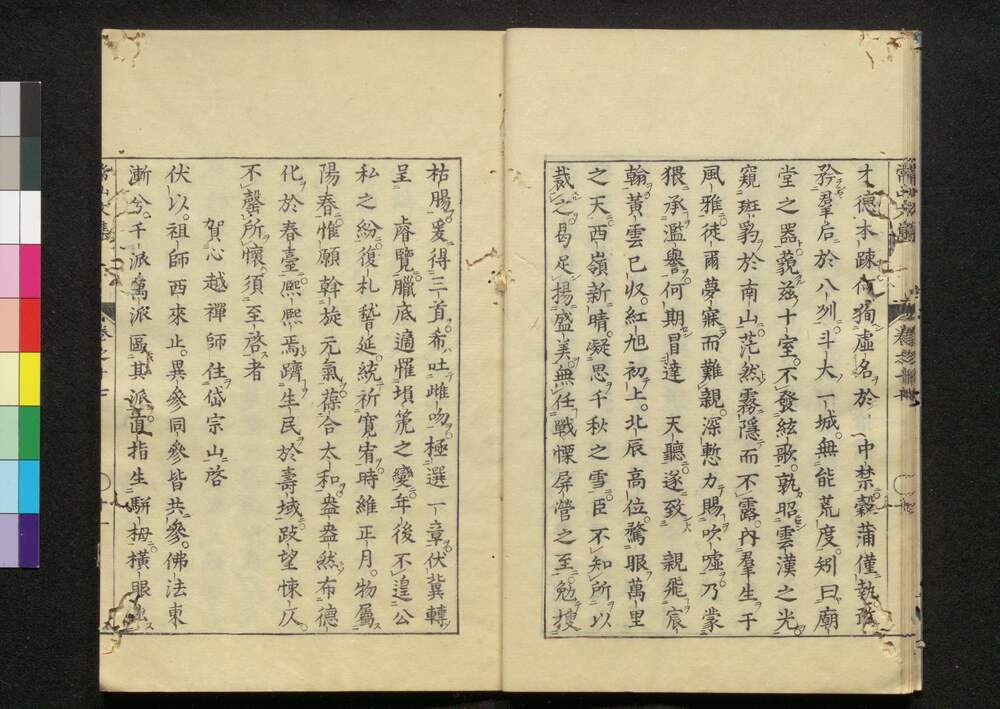 才德本踈何徇虛名於 中禁縠蒲僅執敢
矜羣后於八州斗大一城無能荒度矧曰廟
堂之器藐兹十室不發絃歌孰昭雲漢之光
窺斑豹於南山茫然霧隱而不露內羣生于
風雅徒爾夢寐而難親深慙力賜吹噓乃蒙
猥承濫譽何期冒達 天聽遂致 親飛宸
翰黃雲已収紅旭初上北辰高位騖眼萬里
之天西嶺新晴凝思千秋之雪臣不知所以
裁之曷足揚盛美無任戰慄屏營之至勉搜
枯腸爰得三首希吐雌吻極選一章伏冀轉
呈 睿覽臘底適罹塤箎之變年後不遑公
私之紛復札暬延統祈寬宥時維正月物屬
陽春惟願斡旋元氣葆合太和盎盎然布德
化於春臺熈熈焉躋生民於壽域跂望悚仄
不罄所懷須至啓者
賀心越禪師住岱宗山啓
伏以祖師西來止異參同參皆共參佛法東
漸兮千派萬派區其派直指生駢拇橫眼出